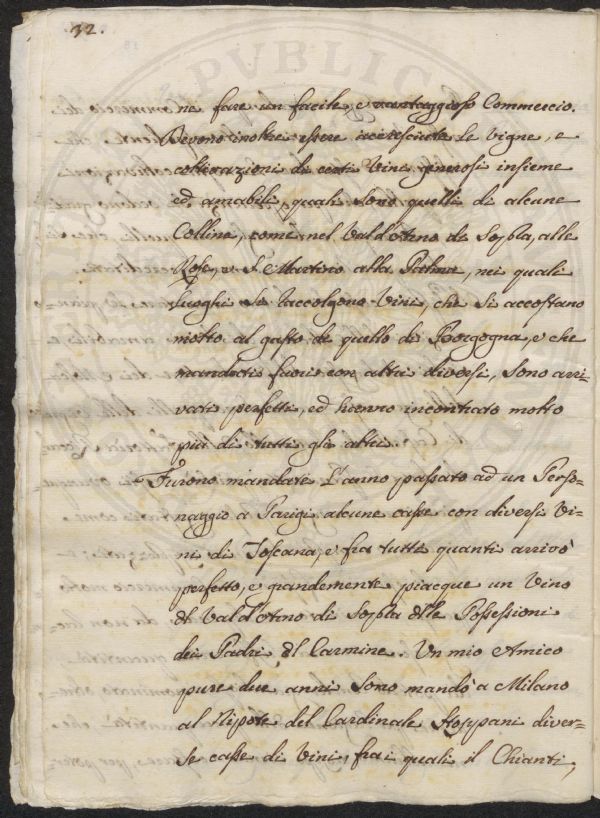 32.
ne fare un facile, e vantaggioso Commercio.
Devono inoltre essere accresciute le vigne, e
coltivazioni di certi Vini generosi insieme
ed amabili, quali sono quelli di alcune
Colline, come nel Vald'Arno di Sopra, alle
Rose, e S. Martino alla Palma, nei quali
Luoghi si raccolgono Vini, che si accostano
molto al gusto di quello di Borgogna, e che
mandati fuori con altri diversi, sono arri-
vati perfetti, ed hanno incontrato molto
più di tutti gli altri.
Furono mandate l'anno passato ad un Perso-
naggio a Parigi alcune casse con diversi Vi-
ni di Toscana, e fra tutti quanti arrivò
perfetto, e grandemente piacque un Vino
dl Vald'Arno di Sopra dlle Possessioni
dei Padri dl Carmine. Un mio Amico
pure due anni sono mandò a Milano
al Nipote del Cardinale Stoppani diver-
se casse di Vini, fra i quali il Chianti,